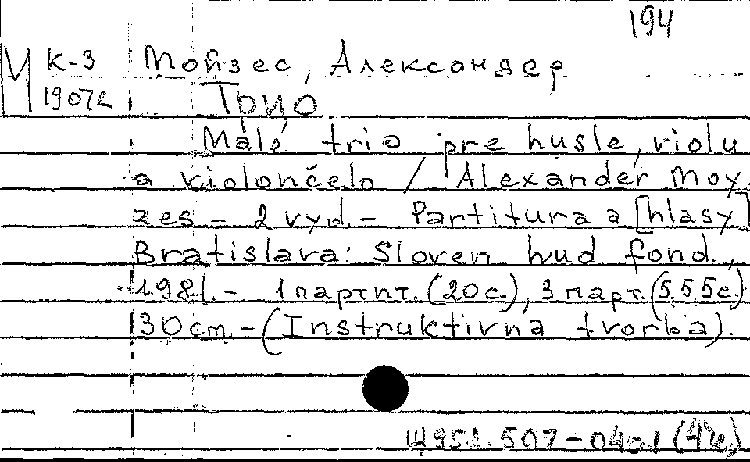 194
М К-3 Мойзес, Александер
1907 Трио
Malé trio pre husle, violu
a violončelo / Alexander Moy
zes – 2 vyd. – Partitura a [hlasy]
Bratislava: Sloven hud fond,
1981. – 1 партит. (20 с.), 3 парт. (5,5,5с.)
30 cm. – (Instruktivna tvorba).